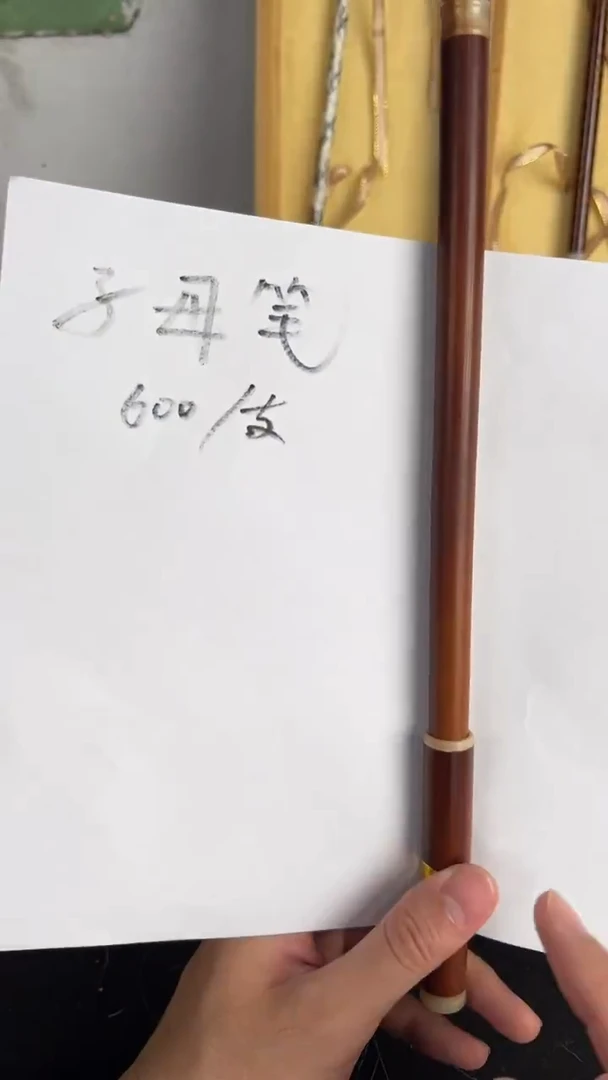 子母笔
600/支